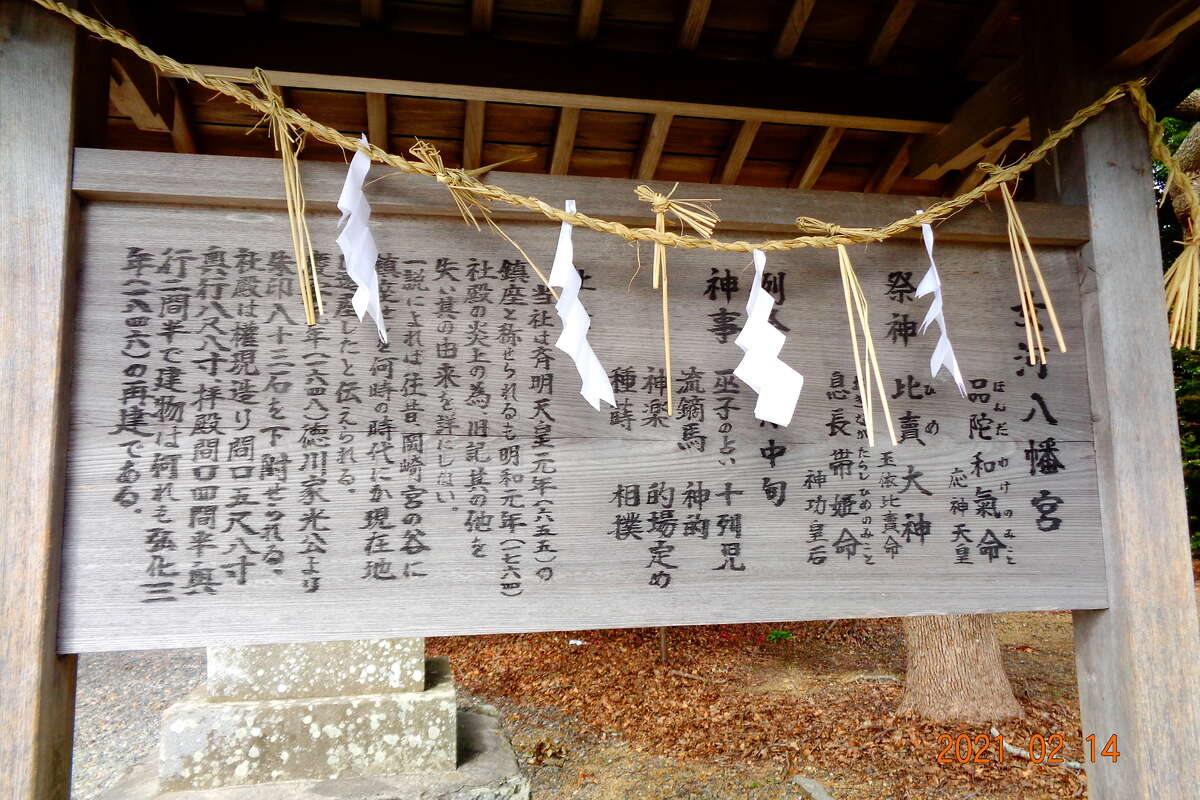 八幡宮
ほんだ わけのみこと
品陀和氣命
応神天皇
祭神
ひめ
比賣大神
玉依比賣命
たらしひめのみこと
息長帯姫命
神功皇后
中旬
神事
巫子の占い 十列児
流鏑馬 神的
神楽 的場定め
種蒔 相撲
当社は斉明天皇元年(六五五)の
鎮座と称せられるも明和元年(一七六四)
社殿の炎上の為旧記其の他を
失い其の由来を詳にしない。
一説によれば往昔岡崎宮の谷に
を何時の時代にか現在地
遷座したと伝えられる。
年(一六四八)徳川家光公より
朱印八十二石を下附せられる。
社殿は権現造り間口五尺八寸
奥行八尺八寸、拝殿間口四間半、奥
行二間半で建物は何れも弘化三
年(一八四六)の再建である。
2021 02 14